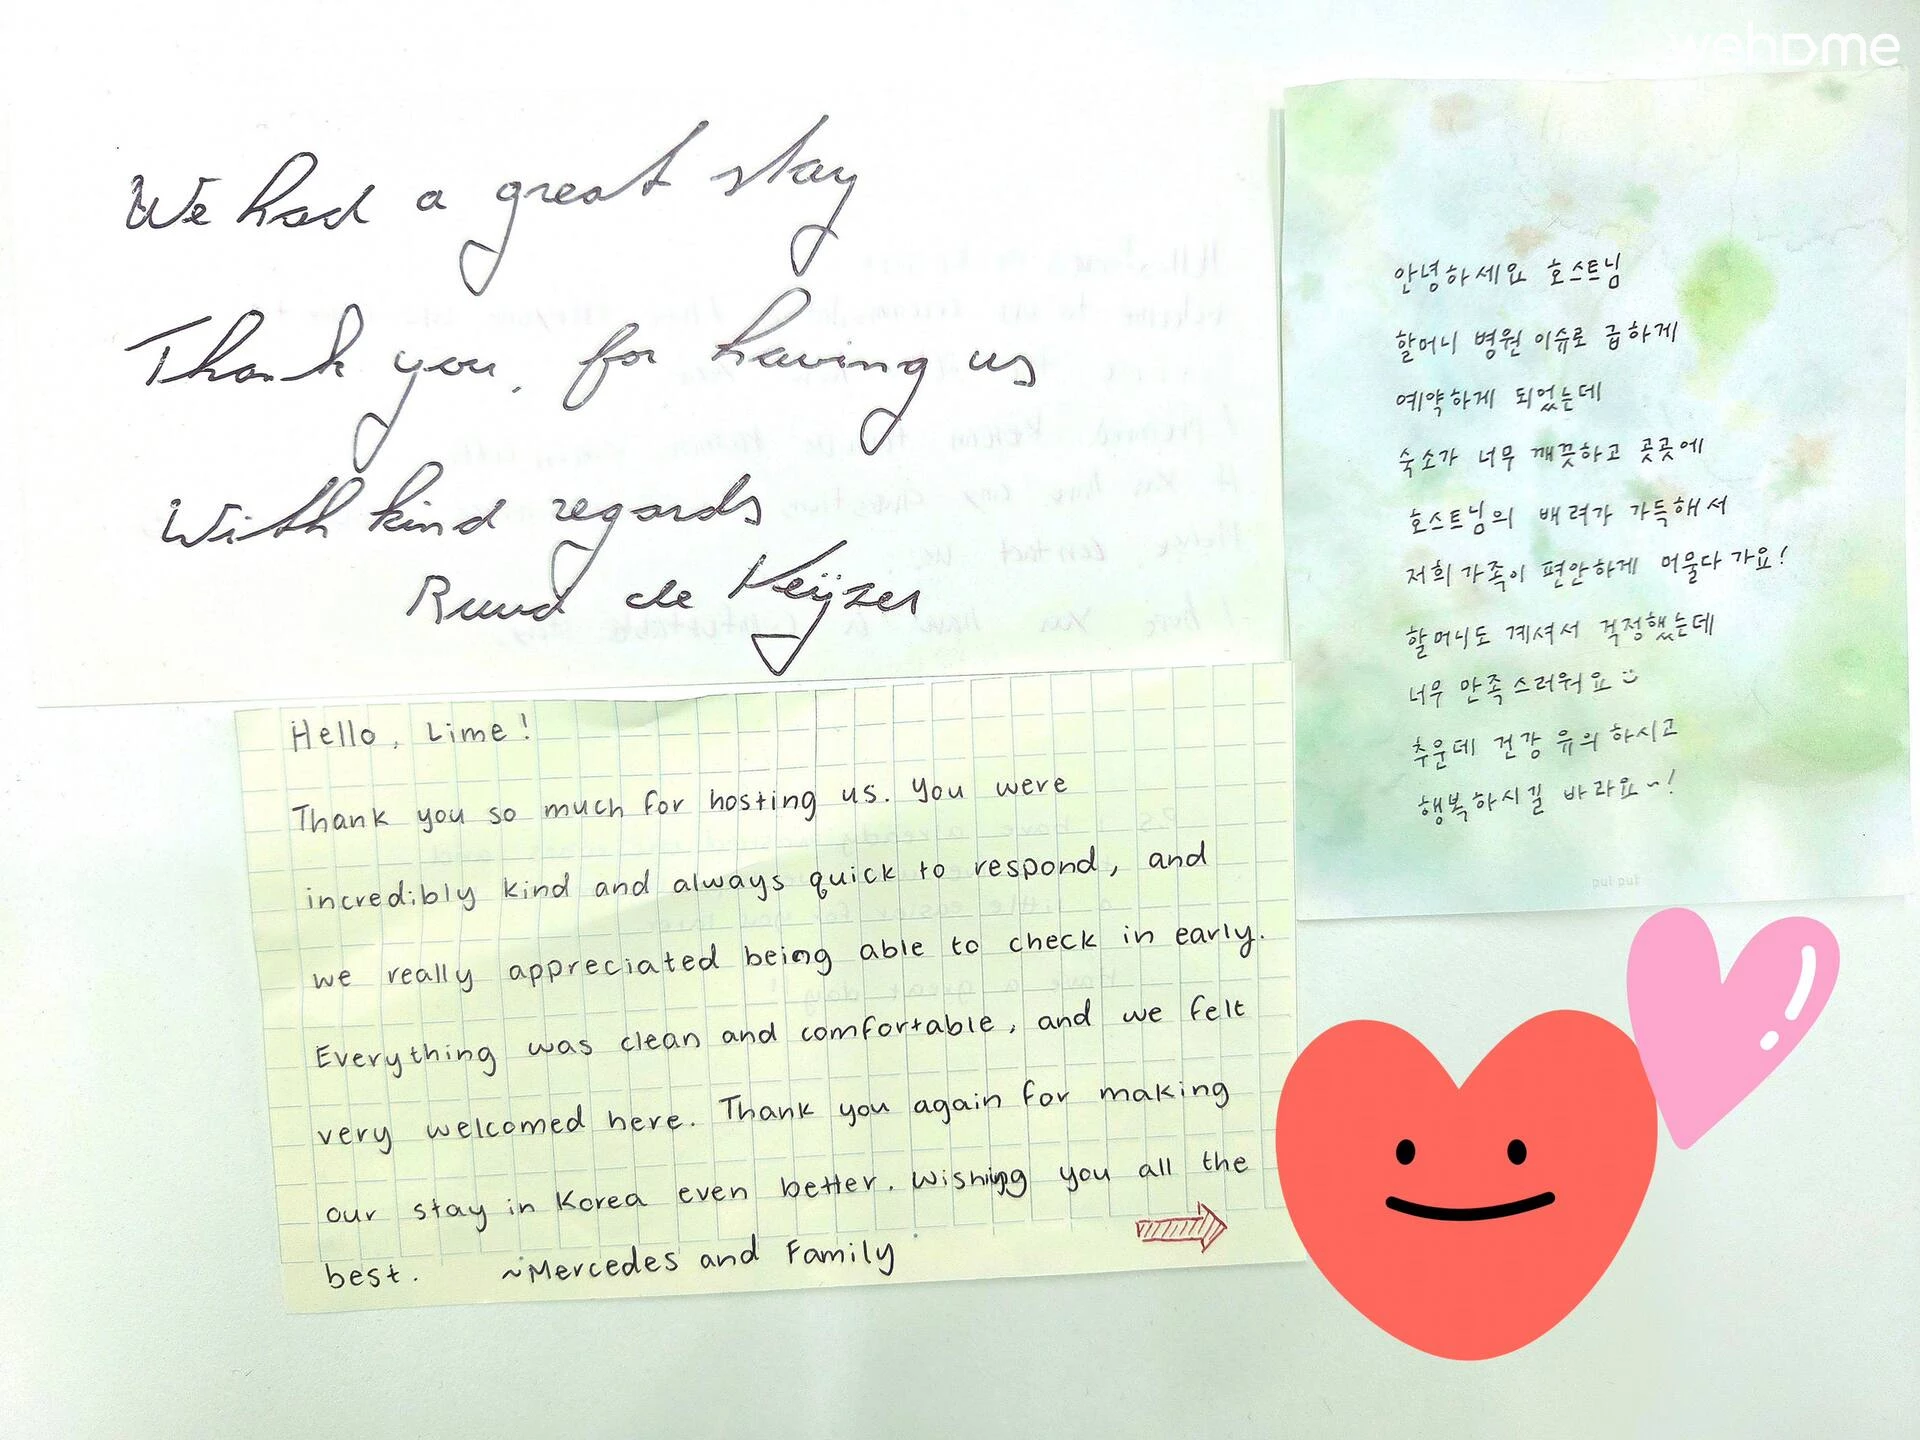 wehome
We had a great stay
Thank you, for having us
With kind regards
Ruud de Keijzer
Hello, Lime!
Thank you so much for hosting us. You were
incredibly kind and always quick to respond, and
we really appreciated being able to check in early.
Everything was clean and comfortable, and we felt
very welcomed here. Thank you again for making
our stay in Korea even better. Wishing you all the
best. ~Mercedes and Family
안녕하세요 호스트님
할머니 병원 이슈로 급하게
예약하게 되었는데
숙소가 너무 깨끗하고 곳곳에
호스트님의 배려가 가득해서
저희 가족이 편안하게 머물다 가요!
할머니도 계셔서 걱정했는데
너무 만족스러워요
추운데 건강 유의하시고
행복하시길 바라요~!